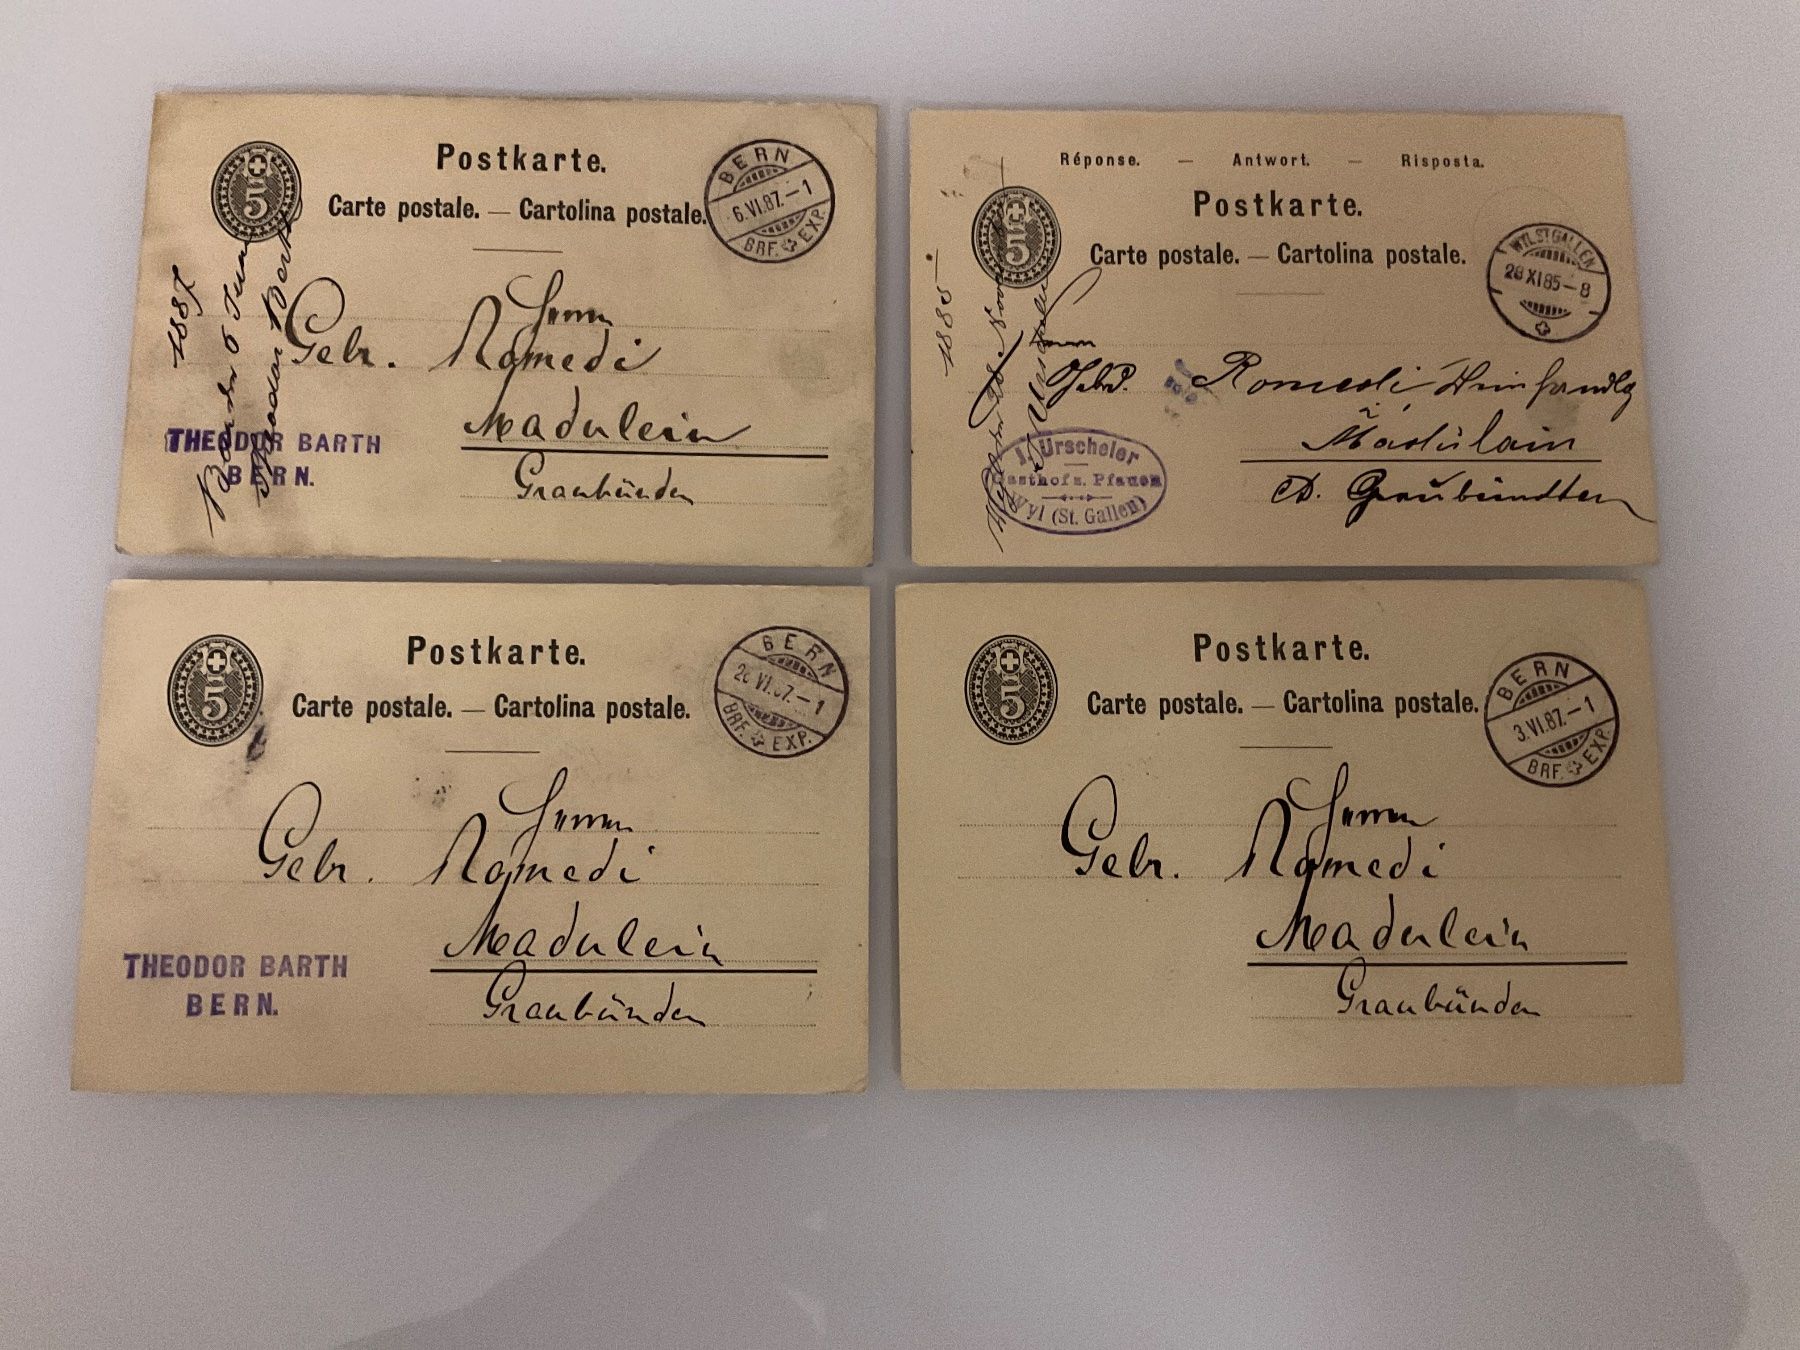 5
Postkarte.
Carte postale. — Cartolina postale.
BERN
6.VI.87.–1
BRF. EXP.
1887
Bern
Theodor Barth
Herren
Gebr. Romedi
Madulein
Graubünden
THEODOR BARTH
BERN.
Réponse. — Antwort. — Risposta.
5
Postkarte.
Carte postale. — Cartolina postale.
WYL ST GALLEN
28 XI 85–8
1885
Herrn
Gebr. Romedi Weinhandlg
Madulain
Ct. Graubündten
J. Urscheler
Gasthof z. Pfauen
Wyl (St. Gallen)
5
Postkarte.
Carte postale. — Cartolina postale.
BERN
VI. 87.–1
BRF. EXP.
Herren
Gebr. Romedi
Madulein
Graubünden
THEODOR BARTH
BERN.
5
Postkarte.
Carte postale. — Cartolina postale.
BERN
3.VI.87.–1
BRF. EXP.
Herren
Gebr. Romedi
Madulein
Graubünden